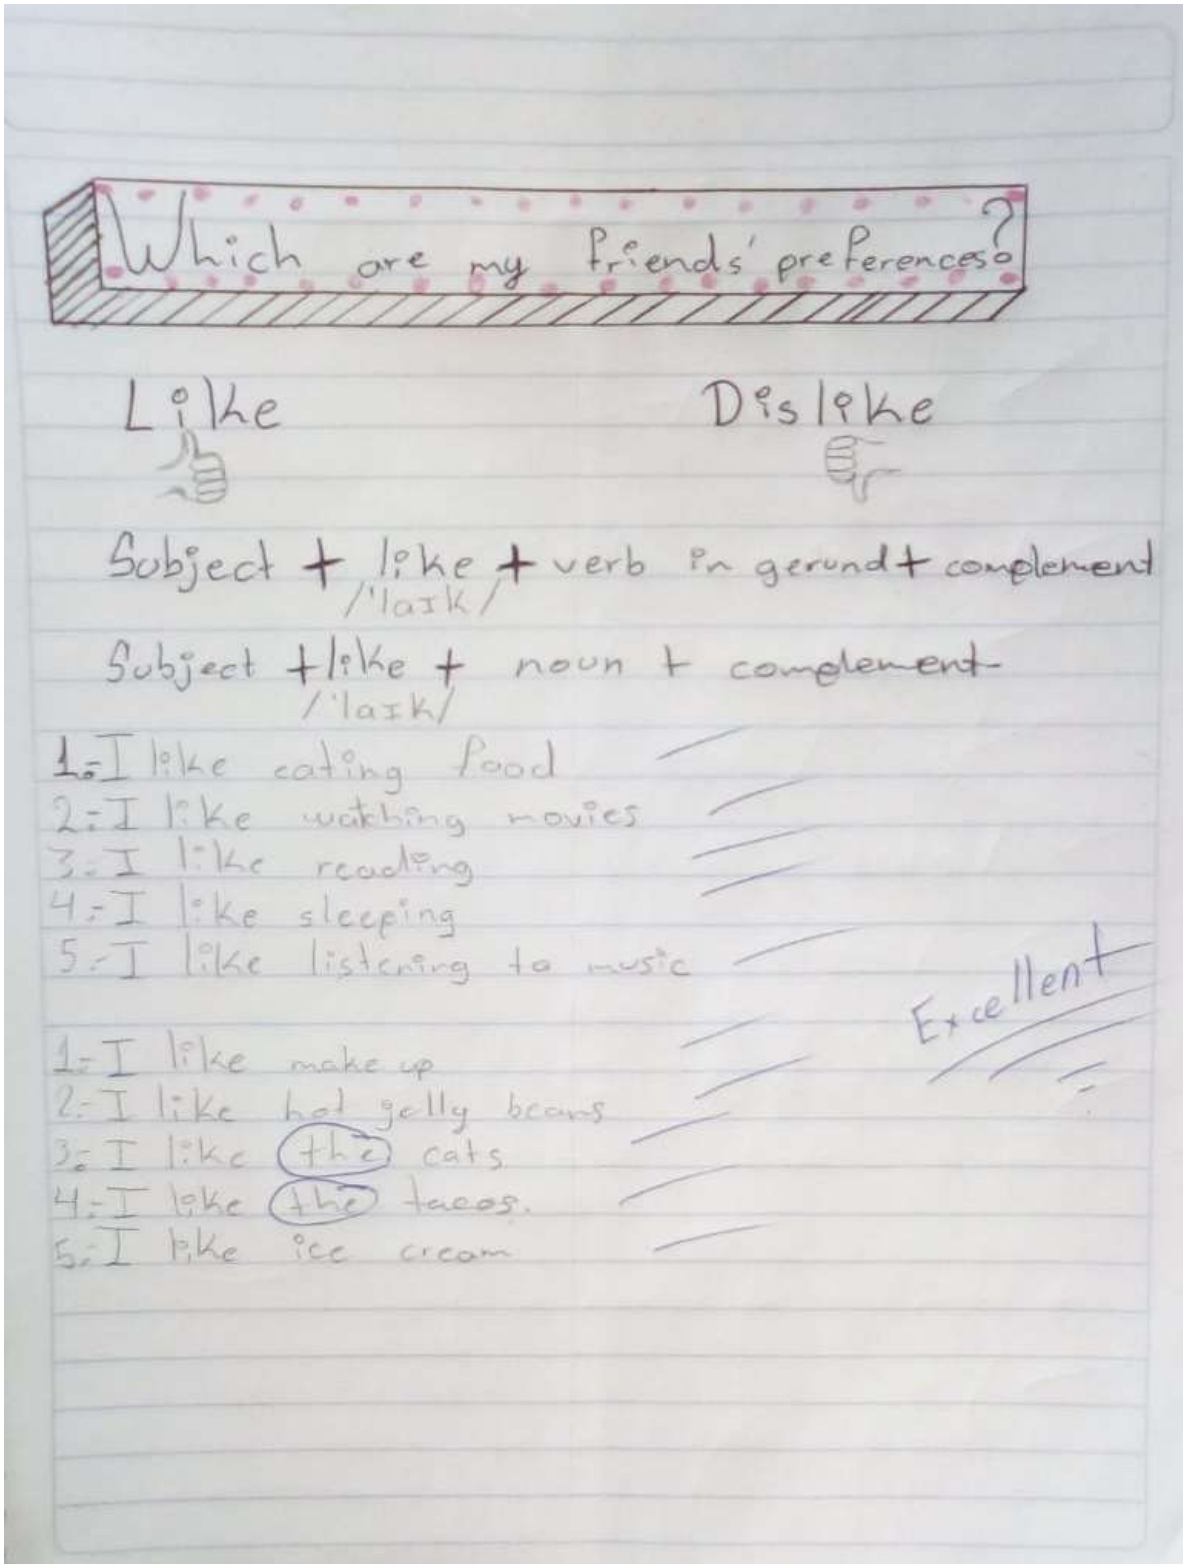 Which are my friends' preferences?
Like Dislike
Subject + like + verb in gerund + complement
/'laɪk/
Subject + like + noun + complement
/'laɪk/
1.- I like eating food
2.- I like watching movies
3.- I like reading
4.- I like sleeping
5.- I like listening to music
Excellent
1.- I like make up
2.- I like hot gelly beans
3.- I like the cats
4.- I like the tacos.
5.- I like ice cream